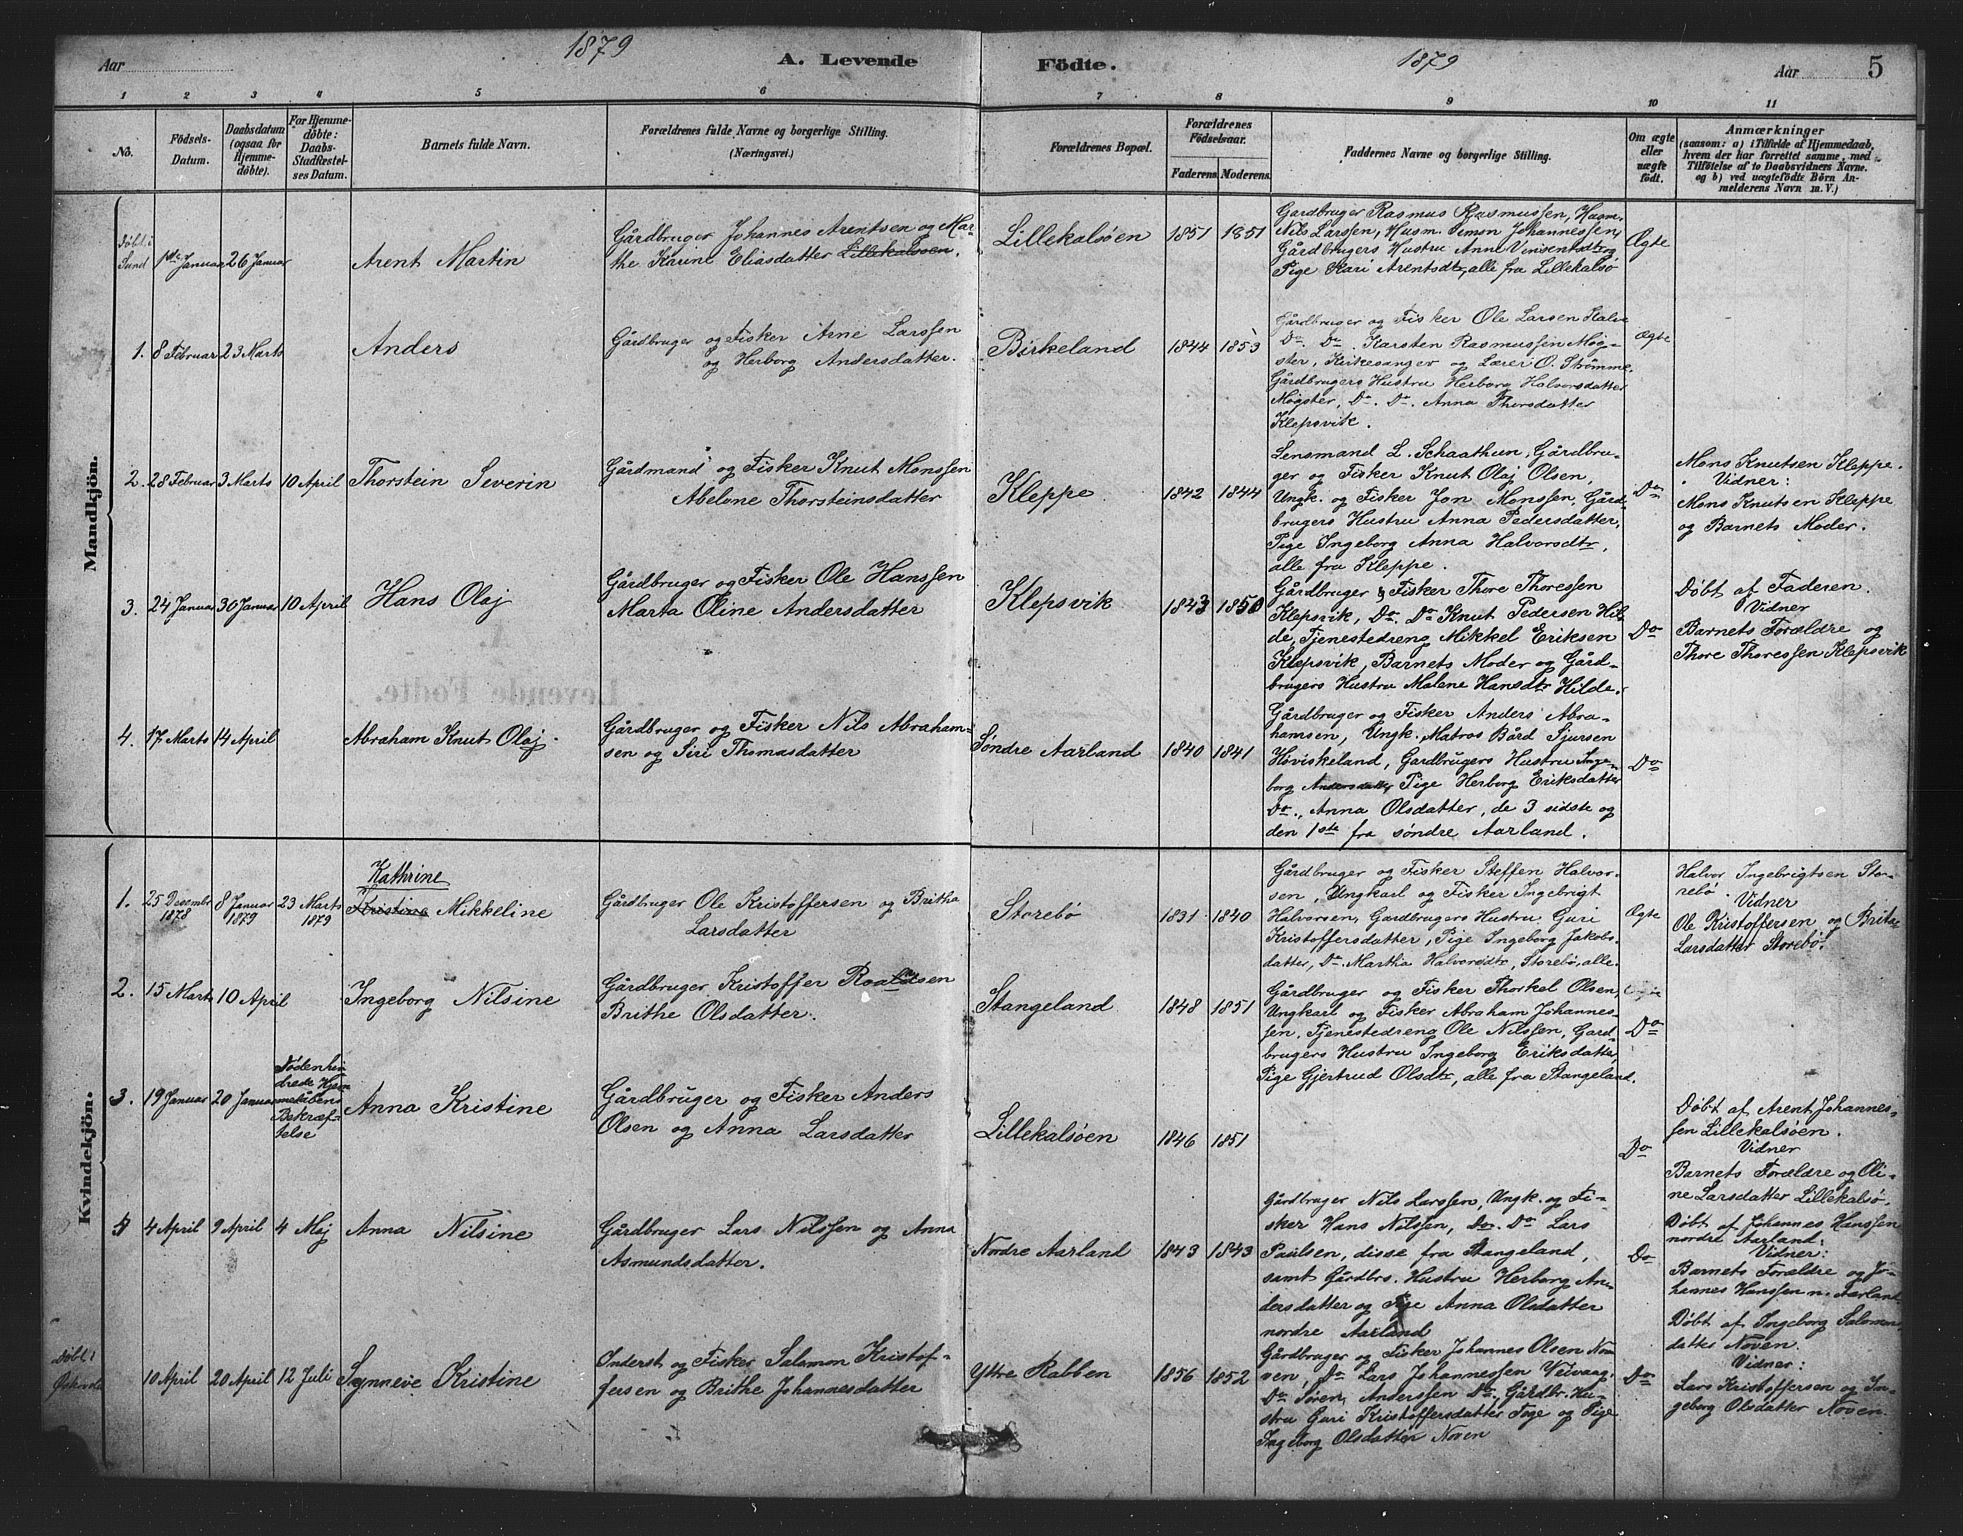 Aar 1879 A. Levende Födte. 1879 Aar 5
1 2 3 4 5 6 7 8 9 10 11
No.
Födsels-
Datum.
Daabsdatum
(ogsaa for
Hjemme-
döbte).
For Hjemme-
döbte:
Daabs-
Stadfæstel-
ses Datum.
Barnets fulde Navn.
Forældrenes fulde Navne og borgerlige Stilling.
(Næringsvei.)
Forældrenes Bopæl.
Forældrenes
Födselsaar.
Faderens. Moderens.
Faddernes Navne og borgerlige Stilling.
Om ægte
eller
uægte
födt.
Anmærkninger
(saasom: a) i Tilfælde af Hjemmedaab,
hvem der har forrettet samme, med
Tilföielse af to Daabsvidners Navne.
og b) ved uægtefödte Börn An-
melderens Navn m. V.)
Mandkjön.
Døbt i
Sund
1ste Januar 26 Januar
Arent Martin
Gårdbruger Johannes Arentsen og Mar-
the Karine Eliasdatter Lillekalsøen.
Lillekalsøen
1851 1851
Gardbruger Rasmus Rasmussen, Husm.
Nils Larssen, Husm. Simon Johannessen,
Gårdbrugers Hustru Anne Vinsentsdtr,
Pige Kari Arentsdtr, alle fra Lillekalsø
Ægte
1. 8 Februar 23 Marts
Anders
Gårdbruger og Fisker Arne Larssen
og Herborg Andersdatter.
Birkeland
1844 1853
Gårdbruger og Fisker Ole Larsen Halv
Do Do Karsten Rasmussen Møg-
ster, Kirkesanger og Lærer O. Strømme,
Gårdbrugers Hustru Herborg Halvorsdatter
Møgster, Do. Do. Anna Thorsdatter
Klepsvik.
Ægte
2. 28 Februar 3 Marts 10 April
Thorstein Severin
Gårdmand og Fisker Knut Monssen
Abelone Thorsteinsdatter
Kleppe
1842 1844
Lensmand L. Schaathun, Gårdbru-
ger og Fisker Knut Olaj Olsen,
Ungk. og Fisker Jon Monssen, Gård-
brugers Hustru Anna Pedersdatter,
Pige Ingeborg Anna Halvorsdtr,
alle fra Kleppe.
Do
Mons Knutsen Kleppe.
Vidner:
Mons Knutsen Kleppe
og Barnets Moder.
3. 24 Januar 30 Januar 10 April
Hans Olaj
Gårdbruger og Fisker Ole Hanssen
Marta Oline Andersdatter
Klepsvik
1843 1850
Gårdbruger & Fisker Thore Thoressen
Klepsvik, Do. Do Knut Pedersen Hil-
de, Tjenestedreng Mikkel Eriksen
Klepsvik, Barnets Moder og Gård-
brugers Hustru Malene Hansdtr Hilde.
Do
Døbt af Faderen.
Vidner
Barnets Forældre og
Thore Thoressen Klepsvik
4. 17 Marts 14 April
Abraham Knut Olaj.
Gårdbruger og Fisker Nils Abraham-
sen og Siri Thomasdatter
Søndre Aarland
1840 1841
Gårdbruger og Fisker Anders Abra-
hamsen, Ungk. Matros Bård Sjursen
Høviskeland, Gardbrugers Hustru Inge-
borg Andersdatter, Pige Herborg Eriksdatter
Do., Anna Olsdatter, de 3 sidste og
den 1ste fra søndre Aarland.
Do
Kvindekjön.
1. 25 Desembr 1878 8 Januar 1879 23 Marts 1879
Kathrine
Kristine Mikkeline
Gårdbruger Ole Kristoffersen og Britha
Larsdatter
Storebø
1831 1840
Gårdbruger og Fisker Steffen Halvor-
sen, Ungkarl og Fisker Ingebrigt
Halvorsen, Gardbrugers Hustru Guri
Kristoffersdatter, Pige Ingeborg Jakobs-
datter, Do. Martha Halvorsdtr, Storebø, alle.
Ægte
Halvor Ingebrigtsen Sto-
rebø.
Vidner
Ole Kristoffersen og Brita
Larsdatter Storebø.
2. 15 Marts 10 April
Ingeborg Nilsine
Gårdbruger Kristoffer Roaldsen
Brithe Olsdatter.
Stangeland
1848 1851
Gårdbruger og Fisker Thorkel Olsen,
Ungkarl og Fisker Abraham Johannes-
sen, Tjenestedreng Ole Nilssen, Gard-
brugers Hustru Ingeborg Eriksdatter,
Pige Gjertrud Olsdtr, alle fra Stangeland.
Do
3. 19 Januar 20 Januar
Døden hin-
drede Hjem-
medåbens
Bekræf-
telse
Anna Kristine
Gårdbruger og Fisker Anders
Olsen og Anna Larsdatter
Lillekalsøen
1846 1851
Do
Døbt af Arent Johannes-
sen Lillekalsøen.
Vidner
Barnets Forældre og Oli-
ne Larsdatter Lillekalsø.
4 April 9 April 4 Maj
Anna Nilsine
Gårdbruger Lars Nilssen og Anna
Asmundsdatter.
Nordre Aarland
1843 1843
Gårdbruger Nils Larssen, Ungk. og Fi-
sker Hans Nilssen, Do. Do Lars
Paulsen, disse fra Stangeland,
samt Gårdbrs. Hustru Herborg An-
dersdatter og Pige Anna Olsdatter
nordre Aarland
Do
Døbt af Johannes Hanssen
nordre Aarland:
Vidner:
Barnets Forældre og Jo-
hannes Hanssen n. Aarland
Døbt i
10 April 20 April 12 Juli
Synneve Kristine
Inderst og Fisker Salamon Kristof-
fersen og Brithe Johannesdatter
Ytre Rabben
1856 1852
Gårdbruger og Fisker Johannes Olsen Nov-
sen, Do Lars Johannessen Veivaag,
Do Søren Anderssen Do, Gårdbr. Hu-
stru Guri Kristoffersdatter Toge og Pige
Ingeborg Olsdatter Noven
Do
Døbt af Ingeborg Salomons-
datter Noven.
Vidner:
Lars Kristoffersen og In-
geborg Olsdatter Noven.